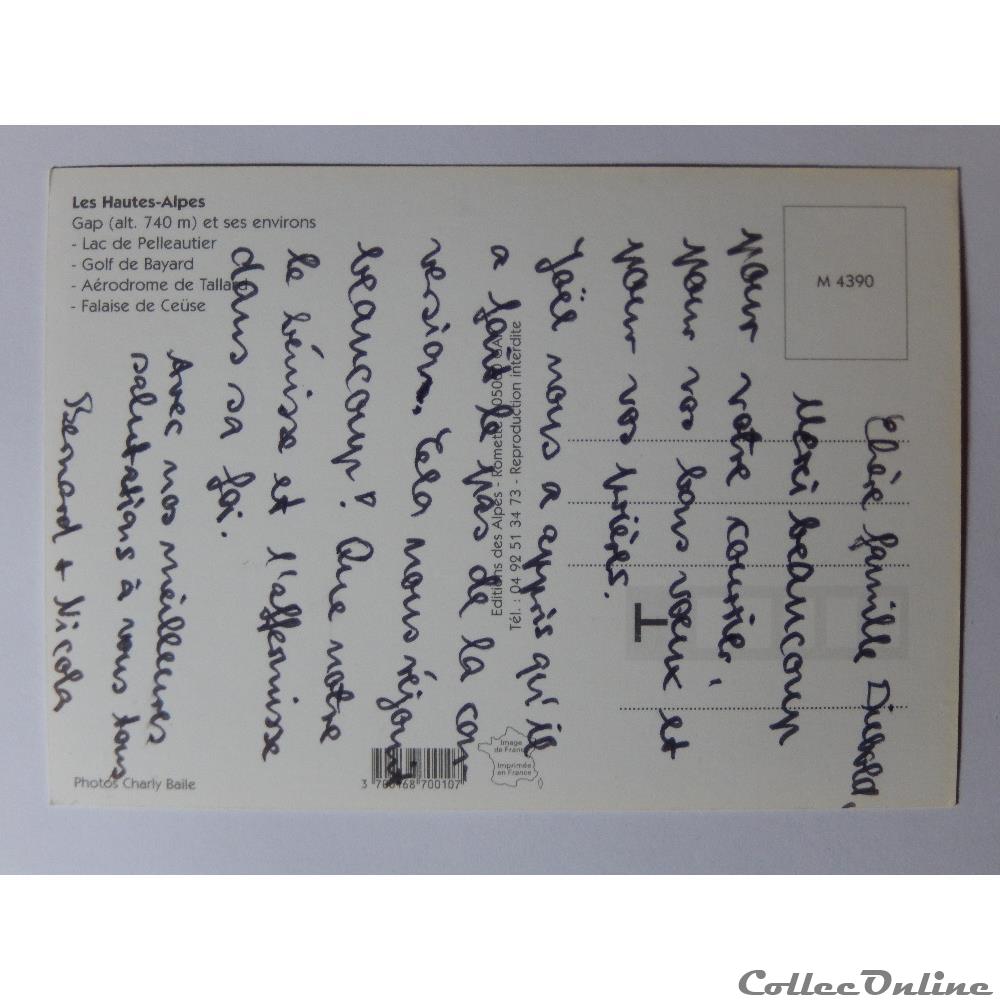 Les Hautes-Alpes
Gap (alt. 740 m) et ses environs
- Lac de Pelleautier
- Golf de Bayard
- Aérodrome de Tallard
- Falaise de Ceüse
M 4390
Editions des Alpes - Romette - 05000 GAP
Tél. : 04 92 51 34 73 - Reproduction interdite
Image
de France
Imprimée
en France
3 700168 700107
Photos Charly Baile
Chère famille Diebold,
Merci beaucoup
pour votre courrier,
pour vos bons vœux et
pour vos prières.
Joël nous a appris qu'il
a fait le pas de la con
version. Cela nous réjouit
beaucoup! Que notre
le bénisse et l'affermisse
dans sa foi.
Avec nos meilleures
salutations à vous tous
Bernard + Nicola
CollecOnline